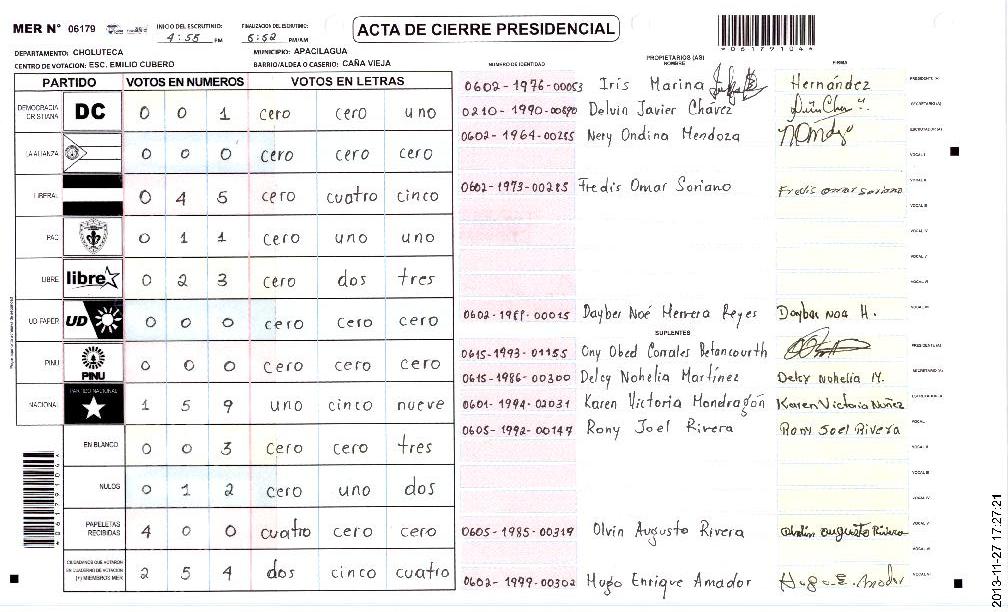 MER N° 06179
INICIO DEL ESCRUTINIO:
4:55 PM
FINALIZACION DEL ESCRUTINIO:
6:52 PM/AM
ACTA DE CIERRE PRESIDENCIAL
*06179104*
DEPARTAMENTO: CHOLUTECA
MUNICIPIO: APACILAGUA
CENTRO DE VOTACION: ESC. EMILIO CUBERO
BARRIO/ALDEA O CASERIO: CAÑA VIEJA
PARTIDO VOTOS EN NUMEROS VOTOS EN LETRAS
DEMOCRACIA CRISTIANA DC 0 0 1 cero cero uno
LA ALIANZA 0 0 0 cero cero cero
LIBERAL 0 4 5 cero cuatro cinco
PAC 0 1 1 cero uno uno
LIBRE libre 0 2 3 cero dos tres
UD-FAPER UD 0 0 0 cero cero cero
PINU PINU 0 0 0 cero cero cero
NACIONAL PARTIDO NACIONAL 1 5 9 uno cinco nueve
EN BLANCO 0 0 3 cero cero tres
NULOS 0 1 2 cero uno dos
PAPELETAS RECIBIDAS 4 0 0 cuatro cero cero
CIUDADANOS QUE VOTARON EN CUADERNO DE VOTACION (+) MIEMBROS MER 2 5 4 dos cinco cuatro
NUMERO DE IDENTIDAD
PROPIETARIOS (AS)
NOMBRE
FIRMA
0602-1976-00053 Iris Marina Hernández PRESIDENTE (A)
0210-1990-00690 Delvin Javier Chávez SECRETARIO (A)
0602-1964-00255 Nery Ondina Mendoza ESCRUTADOR (A)
VOCAL I
0602-1973-00285 Fredis Omar Soriano Fredis omar soriano VOCAL II
VOCAL III
VOCAL IV
VOCAL V
VOCAL VI
0602-1988-00015 Dayber Noé Herrera Reyes Dayber Noa H.
SUPLENTES
0615-1993-01155 Ony Obed Corrales Betancourth PRESIDENTE (A)
0615-1986-00300 Delcy Nohelia Martínez Delcy Nohelia M. SECRETARIO (A)
0601-1994-02031 Karen Victoria Mondragón Karen Victoria Nuñez ESCRUTADOR (A)
0605-1992-00147 Rony Joel Rivera Rony Joel Rivera VOCAL I
VOCAL II
VOCAL III
VOCAL IV
0605-1985-00319 Olvin Augusto Rivera Olvin augusto Rivera VOCAL V
0602-1999-00302 Hugo Enrique Amador Hugo E. Amador
2013-11-27 17:27:21